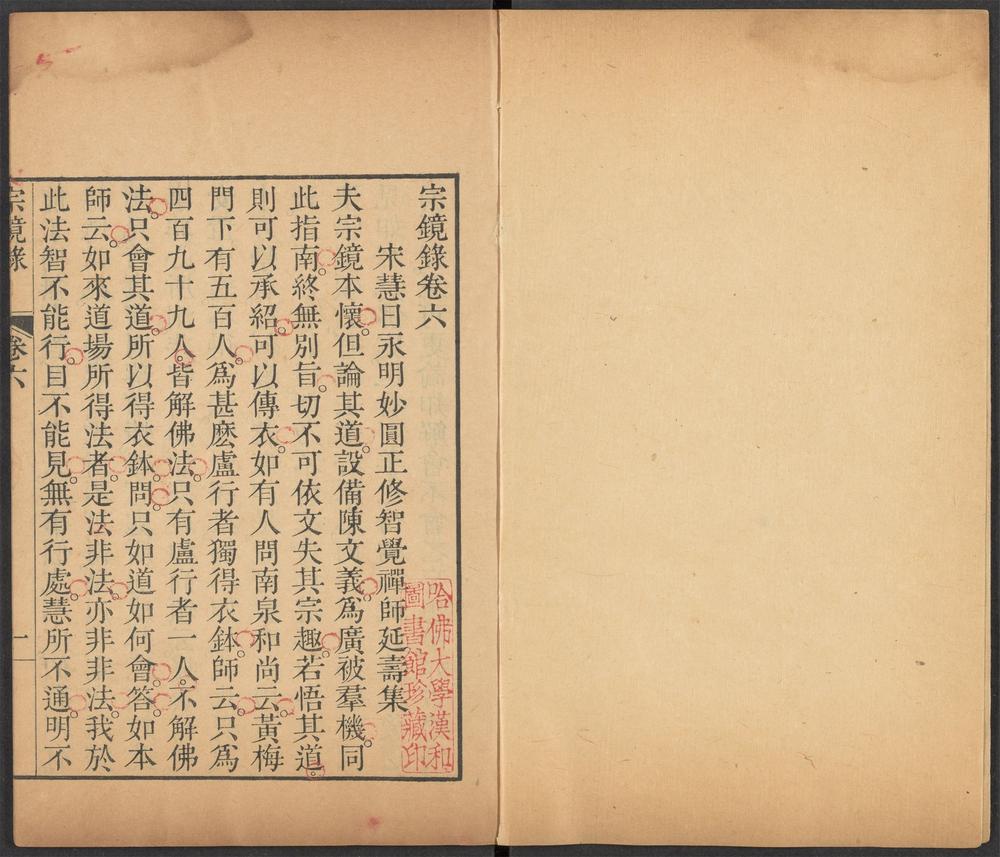 宗鏡錄卷六
宋慧日永明妙圓正修智覺禪師延壽集
夫宗鏡本懷。但論其道。設備陳文義。爲廣被羣機。同
此指南。終無別旨。切不可依文失其宗趣。若悟其道。
則可以承紹。可以傳衣。如有人問南泉和尚云。黃梅
門下有五百人。爲甚麽盧行者獨得衣鉢。師云。只爲
四百九十九人。皆解佛法。只有盧行者一人。不解佛
法。只會其道。所以得衣鉢。問。只如道如何會。答。如本
師云。如來道場所得法者。是法非法。亦非非法。我於
此法智不能行。目不能見。無有行處。慧所不通。明不
宗鏡錄
卷六
一
哈佛大學漢和
圖書館珍藏印